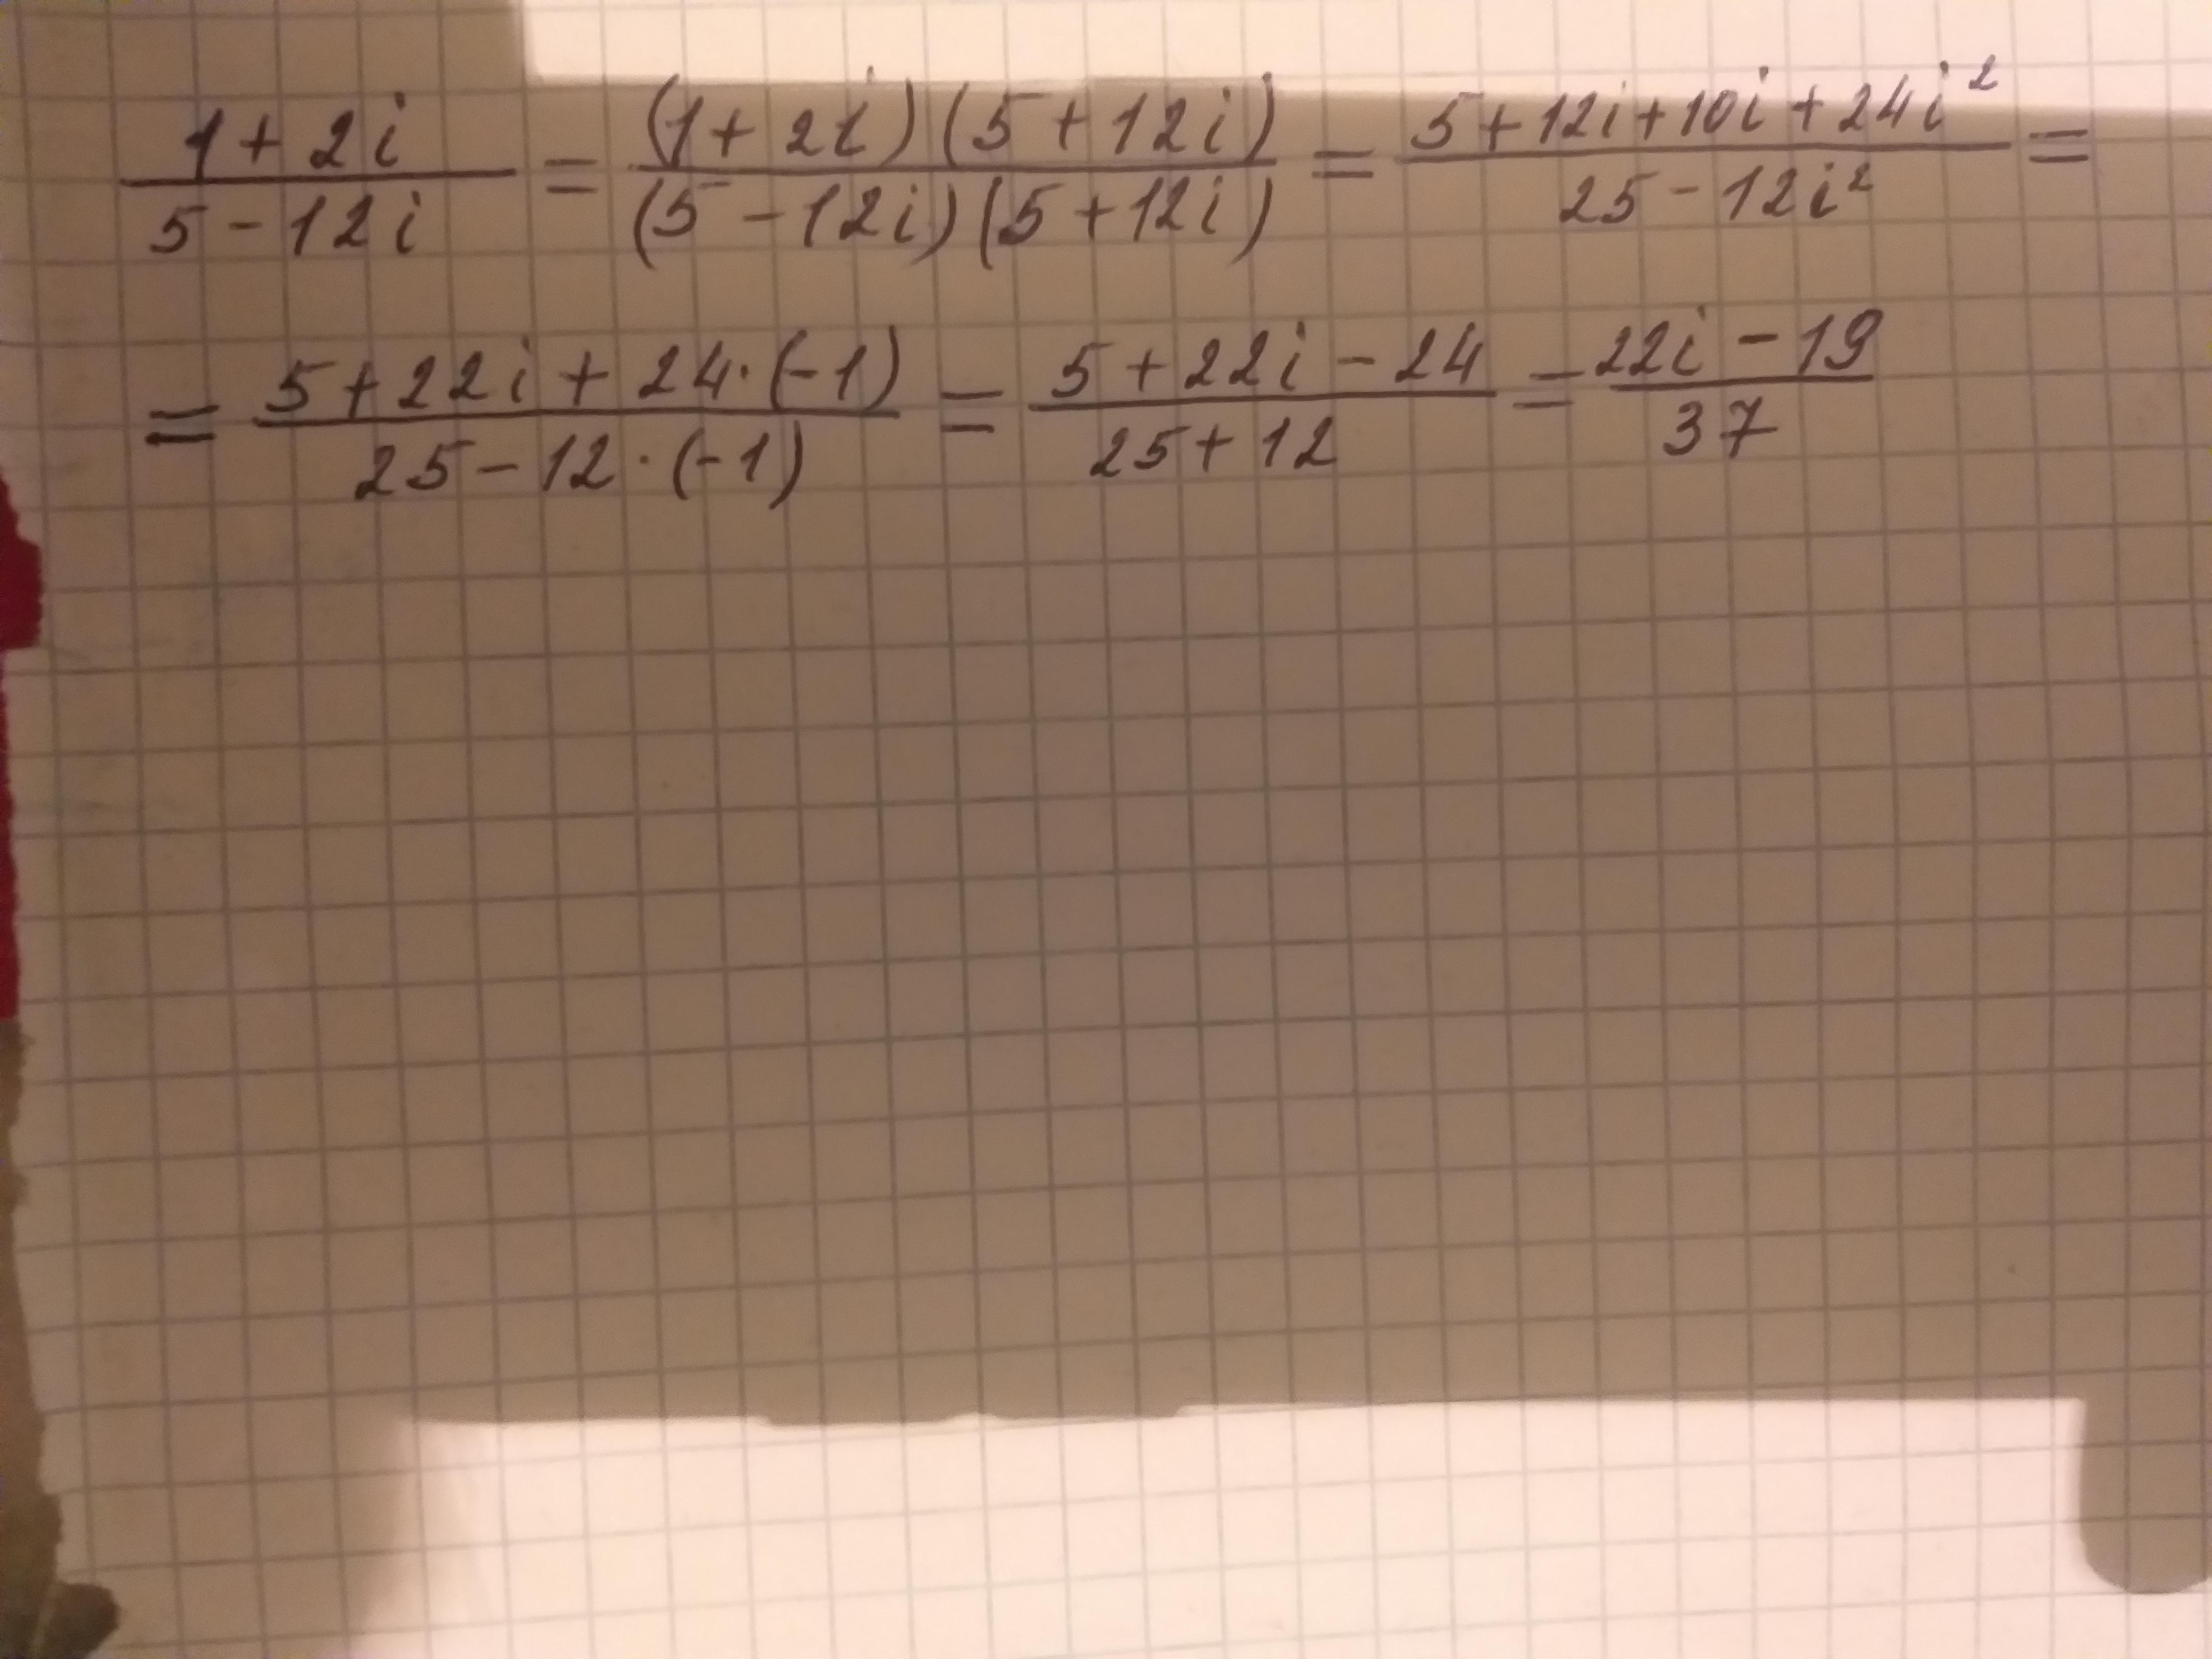 (1+2i)/(5-12i) = ((1+2i)(5+12i))/((5-12i)(5+12i)) = (5+12i+10i+24i²)/(25-12i²) =
= (5+22i+24·(-1))/(25-12·(-1)) = (5+22i-24)/(25+12) = (22i-19)/37